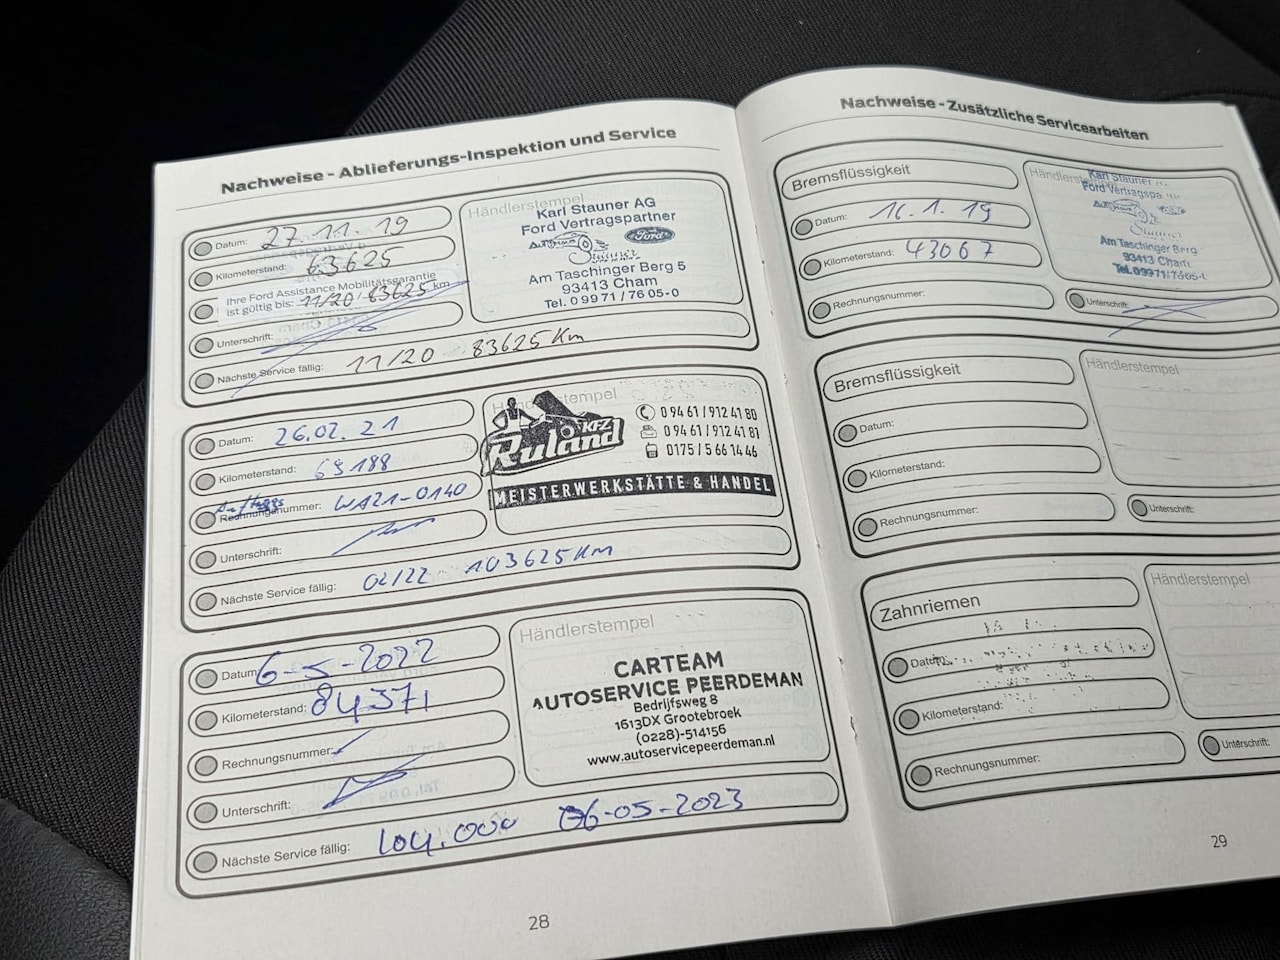 Nachweise - Ablieferungs-Inspektion und Service
Datum: 27.11.19
Kilometerstand: 63625
Ihre Ford Assistance Mobilitätsgarantie
ist gültig bis: 11/20 / 83625 km
Unterschrift:
Nächste Service fällig: 11/20 83625 Km
Händlerstempel
Karl Stauner AG
Ford Vertragspartner
Ford
Am Taschinger Berg 5
93413 Cham
Tel. 0 99 71 / 76 05-0
Datum: 26.02.21
Kilometerstand: 69188
Auftrags
Rechnungsnummer: WA21-0140
Unterschrift:
Nächste Service fällig: 02/22 - 103625 Km
Händlerstempel
KFZ
Ruland
0 94 61 / 912 41 80
0 94 61 / 912 41 81
0175 / 5 66 14 46
MEISTERWERKSTÄTTE & HANDEL
Datum 6-5-2022
Kilometerstand: 84371
Rechnungsnummer:
Unterschrift:
Nächste Service fällig: 104.000 06-05-2023
Händlerstempel
CARTEAM
AUTOSERVICE PEERDEMAN
Bedrijfsweg 8
1613DX Grootebroek
(0228)-514156
www.autoservicepeerdeman.nl
28
Nachweise - Zusätzliche Servicearbeiten
Bremsflüssigkeit
Datum: 16.1.19
Kilometerstand: 43067
Rechnungsnummer:
Karl Stauner
Ford Vertragspa
Am Taschinger Berg
93413 Cham
Tel. 09971/7605-
Unterschrift:
Bremsflüssigkeit
Datum:
Kilometerstand:
Rechnungsnummer:
Händlerstempel
Unterschrift:
Zahnriemen
Datum:
Kilometerstand:
Rechnungsnummer:
Händlerstempel
Unterschrift:
29